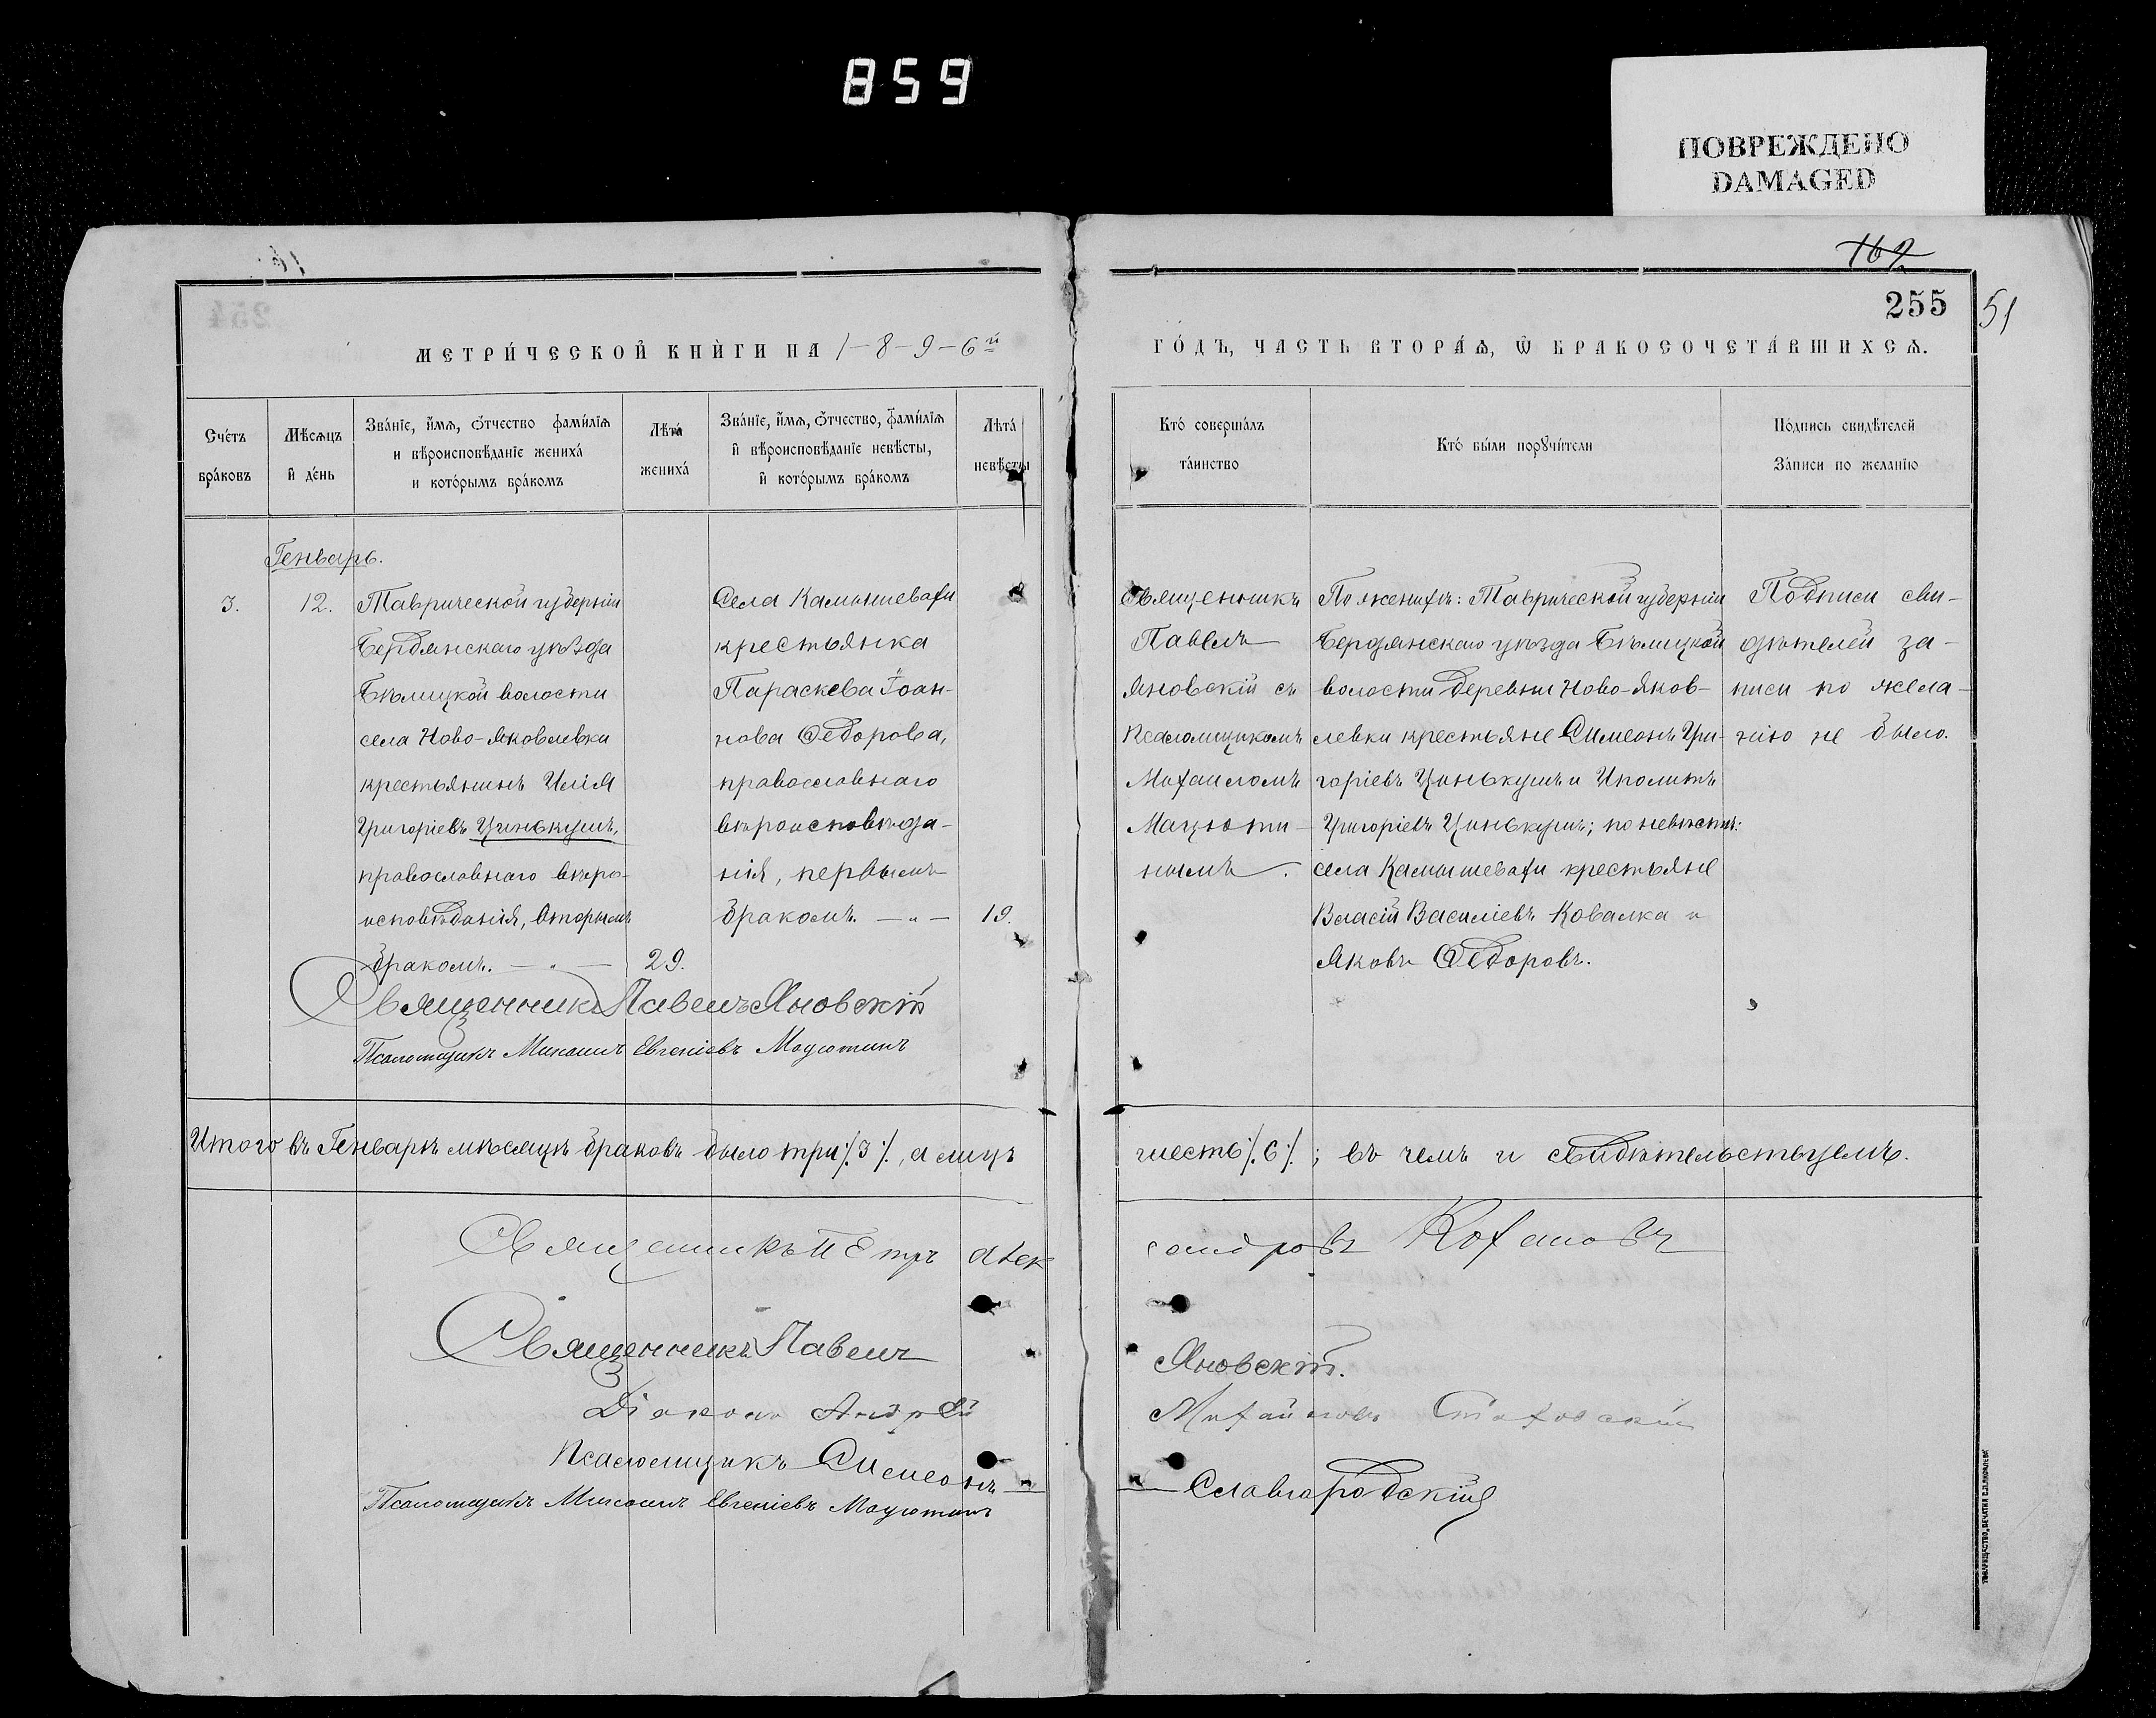 859
ПОВРЕЖДЕНО
DAMAGED
162
255
51
МЕТРИ́ЧЕСКОЙ КНИ́ГИ НА 1-8-9-6й
ГО́ДЪ, ЧАСТЬ ВТОРА́Ѧ, Ѽ БРАКОСОЧЕТА́ВШИХСѦ.
Сче́тъ
бра́ковъ
Мѣ́сѧцъ
и҆ де́нь
Зва́нїе, и҆́мѧ, ѻ҆́тчество фами́лїѧ
и вѣроисповѣ́данїе жениха́
и кото́рымъ бра́комъ
Лѣта́
жениха́
Зва́нїе, и҆́мѧ, ѻ҆́тчество, фами́лїѧ
и҆ вѣроисповѣ́данїе невѣ́сты,
и҆ кото́рымъ бра́комъ
Лѣта́
невѣ́сты
Кто́ соверша́лъ
та́инство
Кто́ бы́ли порꙋчи́тели
По́дпись свидѣ́телей
За́писи по жела́нїю
Генварь.
3.
12.
Таврической губерніи
Бердянскаго уѣзда
Бѣлицкой волости
села Ново-Яковлевки
крестьянинъ Илія
Григоріевъ Цинькушъ,
православнаго вѣро-
исповѣданія, вторымъ
бракомъ. — " —
29.
Села Камышевахи
крестьянка
Параскева Іоан-
нова Ѳедорова,
православнаго
вѣроисповѣда-
нія, первымъ
бракомъ. — " —
19.
Священникъ
Павелъ
Яновскій съ
псаломщикомъ
Михаиломъ
Мацюти-
нымъ.
По женихѣ: Таврической губерніи
Бердянскаго уѣзда Бѣлицкой
волости деревни Ново-Яков-
левки крестьяне Симеонъ Гри-
горіевъ Цинькушъ и Иполитъ
Григоріевъ Цинькушъ; по невѣстѣ:
села Камышевахи крестьяне
Власій Василіевъ Ковалка и
Яковъ Ѳедоровъ.
Подписи сви-
дѣтелей за-
писи по жела-
нію не было.
Священникъ Павелъ Яновскій
Псаломщикъ Михаилъ Евгеніевъ Мацютинъ
Итого въ Генварѣ мѣсяцѣ браковъ было три ⁒3⁒, а лицъ
шесть ⁒6⁒; въ чемъ и свидѣтельствуемъ.
Священникъ Петръ Алек
сандровъ Кохановъ
Священникъ Павелъ
Яновскій.
Діаконъ Андрей
Михайловъ Стаховскій
Псаломщикъ Симеонъ
Славгородскій
Псаломщикъ Михаилъ Евгеніевъ Мацютинъ